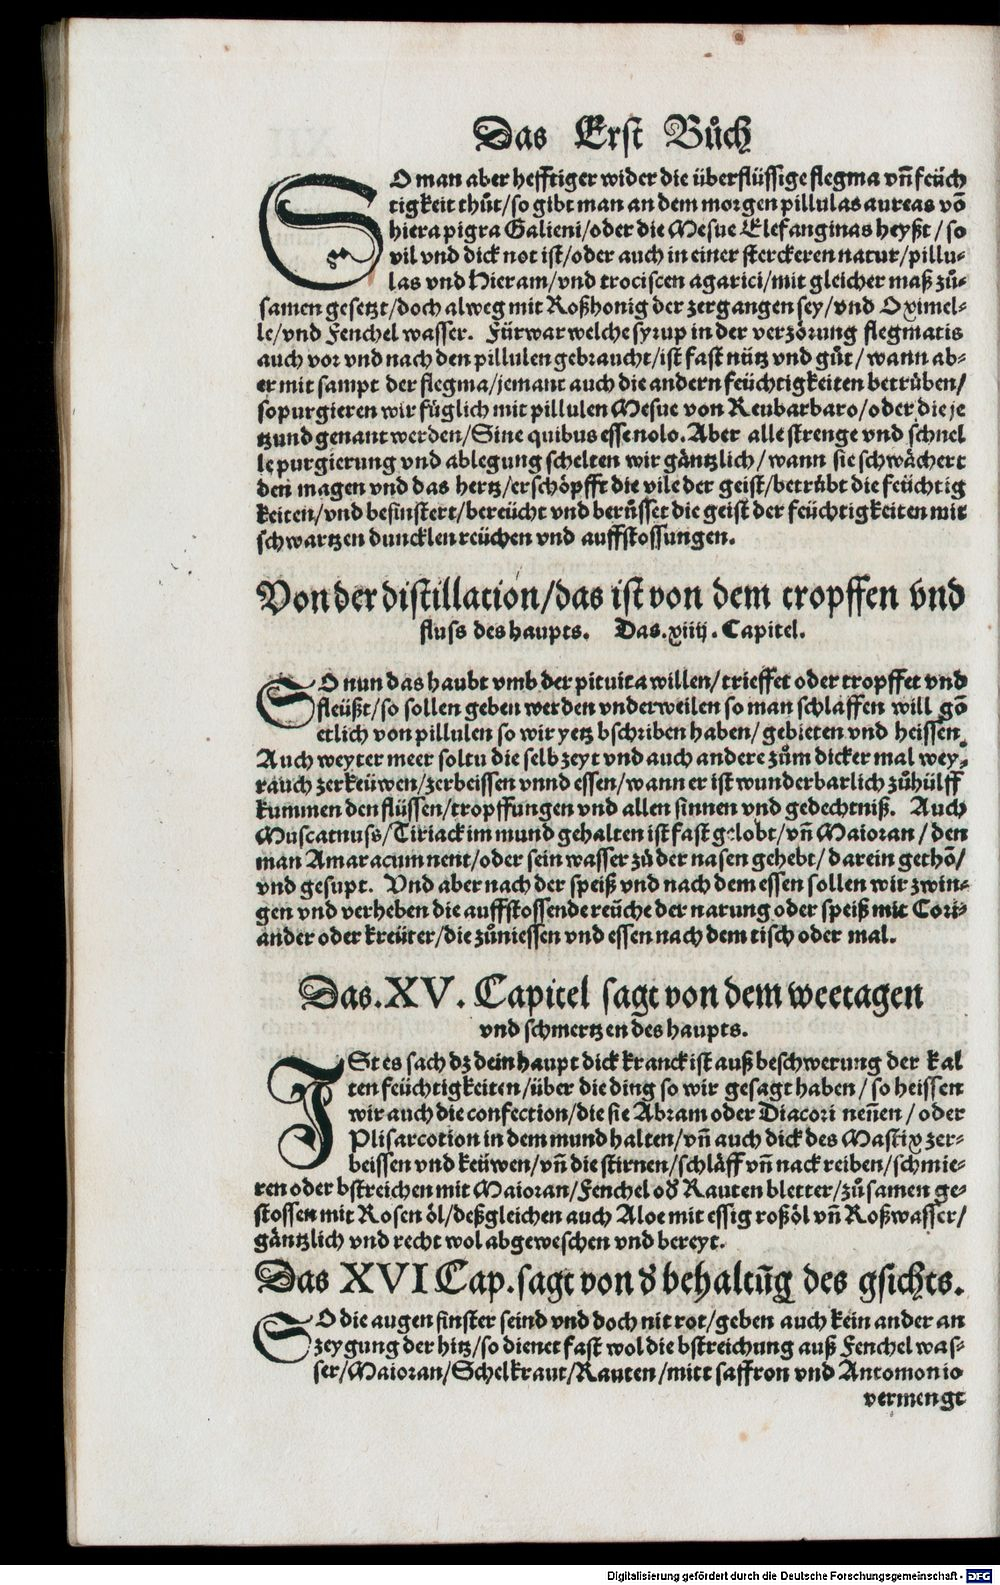 Das Erst Bůch
SO man aber hefftiger wider die überflüssige flegma vñ feüch
tigkeit thůt/so gibt man an dem morgen pillulas aureas võ
hiera pigra Galieni/oder die Mesue Elefanginas heyßt/so
vil vnd dick not ist/oder auch in einer sterckeren natur/pillu-
las vnd Hieram/vnd trociscen agarici/mit gleicher maß zů-
samen gesetzt/doch alweg mit Roßhonig der zergangen sey/vnd Oximel-
le/vnd Fenchel wasser. Fürwar welche syrup in der verzörung flegmatis
auch vor vnd nach den pillulen gebraucht/ist fast nütz vnd gůt/wann ab-
er mit sampt der flegma/jemant auch die andern feüchtigkeiten betrüben/
so purgieren wir füglich mit pillulen Mesue von Reubarbaro/oder die je
tzund genant werden/Sine quibus esse nolo. Aber alle strenge vnd schnel
le purgierung vnd ablegung schelten wir gäntzlich/wann sie schwächert
den magen vnd das hertz/erschöpfft die vile der geist/betrübt die feüchtig
keiten/vnd befinstert/bereücht vnd berůsset die geist der feüchtigkeiten mit
schwartzen duncklen reüchen vnd auffstossungen.
Von der distillation/das ist von dem tropffen vnd
fluss des haupts. Das.xiiij.Capitel.
SO nun das haubt vmb der pituita willen/trieffet oder tropffet vnd
fleüßt/so sollen geben werden vnderweilen so man schlaffen will gõ
etlich von pillulen so wir yetz bschriben haben/gebieten vnd heissen.
Auch weyter meer soltu die selb zeyt vnd auch andere zům dicker mal wey-
rauch zerkeüwen/zerbeissen vnnd essen/wann er ist wunderbarlich zůhülff
kummen den flüssen/tropffungen vnd allen sinnen vnd gedechtniß. Auch
Muscatnuss/Tiriack im mund gehalten ist fast gelobt/vñ Maioran/den
man Amaracum nent/oder sein wasser zů der nasen gehebt/darein gethõ/
vnd gesupt. Vnd aber nach der speiß vnd nach dem essen sollen wir zwin-
gen vnd verheben die auffstossende reüche der narung oder speiß mit Cori-
ander oder kreüter/die zůniessen vnd essen nach dem tisch oder mal.
Das.XV.Capitel sagt von dem weetagen
vnd schmertzen des haupts.
ISt es sach dz dein haupt dick kranck ist auß beschwerung der kal
ten feüchtigkeiten/über die ding so wir gesagt haben/so heissen
wir auch die confection/die sie Abram oder Diacori neñen/oder
Plisarcotion in dem mund halten/vñ auch dick des Mastix zer-
beissen vnd keüwen/vñ die stirnen/schläff vñ nack reiben/schmie-
ren oder bstreichen mit Maioran/Fenchel oď Rauten bletter/zůsamen ge-
stossen mit Rosen öl/deßgleichen auch Aloe mit essig roßöl vñ Roßwasser/
gäntzlich vnd recht wol abgeweschen vnd bereyt.
Das XVI Cap.sagt von ď behaltũg des gsichts.
SO die augen finster seind vnd doch nit rot/geben auch kein ander an
zeygung der hitz/so dienet fast wol die bstreichung auß Fenchel was-
ser/Maioran/Schelkraut/Rauten/mitt saffron vnd Antomonio
vermengt
Digitalisierung gefördert durch die Deutsche Forschungsgemeinschaft - DFG